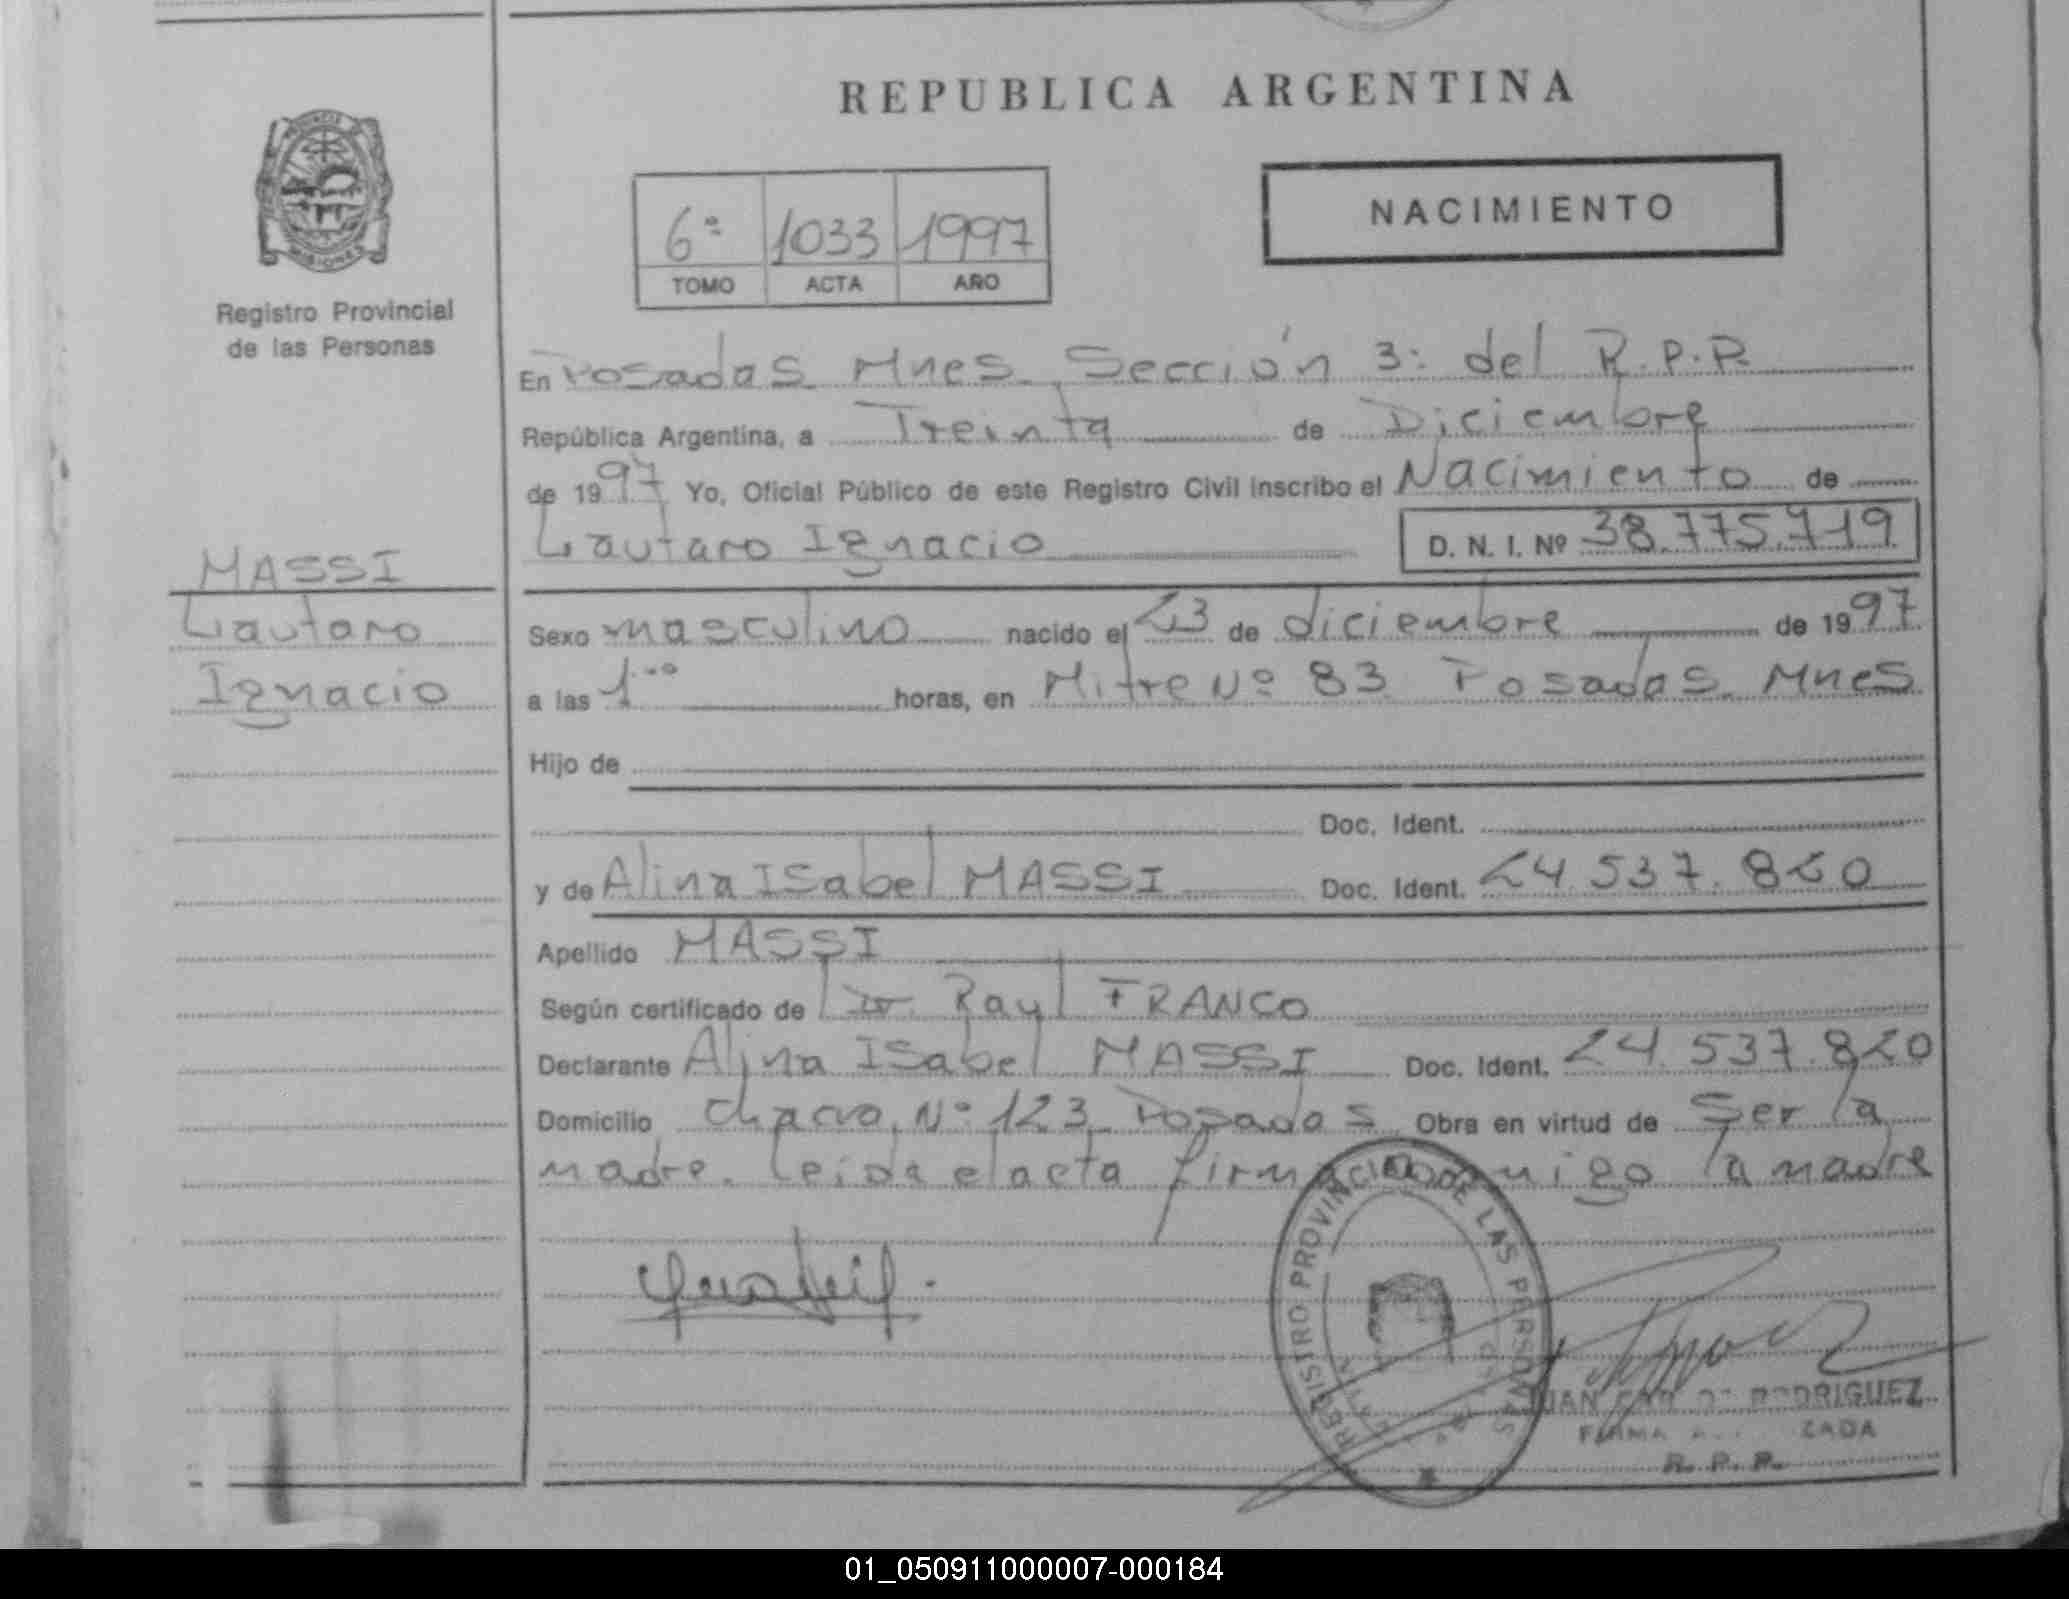 REPUBLICA ARGENTINA
PROVINCIA DE MISIONES
Registro Provincial
de las Personas
6ª 1033 1997
TOMO ACTA AÑO
NACIMIENTO
En Posadas Mnes. Sección 3ª del R.P.P.
República Argentina, a Treinta de Diciembre
de 1997 Yo, Oficial Público de este Registro Civil inscribo el Nacimiento de
Lautaro Ignacio D. N. I. Nº 38.775.719
MASSI
Lautaro
Ignacio
Sexo masculino nacido el 23 de diciembre de 1997
a las 1.ºº horas, en Mitre Nº 83 Posadas Mnes
Hijo de
Doc. Ident.
y de Alina ISabel MASSI Doc. Ident. 24.537.820
Apellido MASSI
Según certificado de Dr. Raul FRANCO
Declarante Alina ISabel MASSI Doc. Ident. 24.537.820
Domicilio Chaco Nº 123 Posadas Obra en virtud de Ser la
madre. leida el acta firma conmigo la madre
REGISTRO PROVINCIAL DE LAS PERSONAS
RODRIGUEZ
FIRMA
R. P. P.
01_050911000007-000184